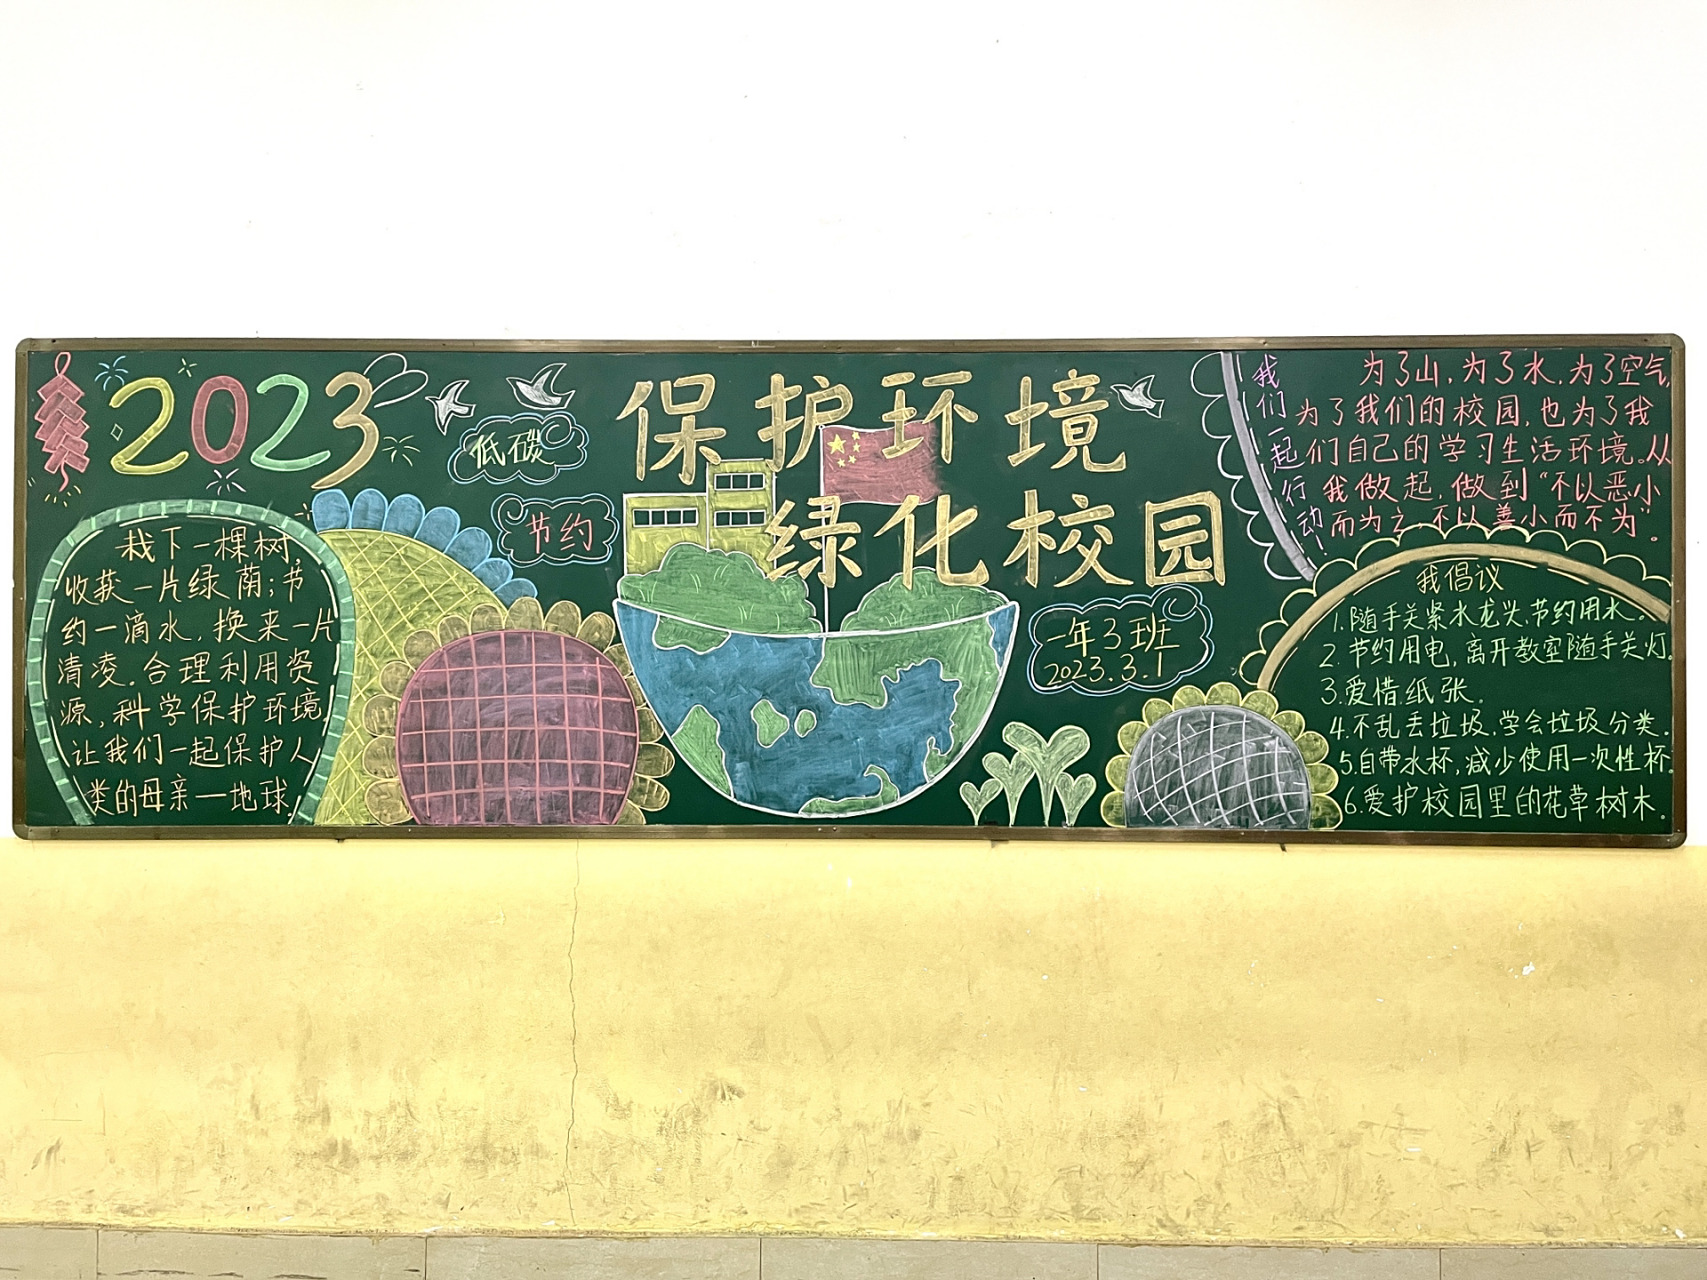 2023
低碳
节约
保护环境
绿化校园
一年3班
2023.3.1
栽下一棵树,
收获一片绿荫;节
约一滴水,换来一片
清凌。合理利用资
源,科学保护环境,
让我们一起保护人
类的母亲—地球。
我们一起行动!
为了山,为了水,为了空气,
为了我们的校园,也为了我
们自己的学习生活环境。从
我做起,做到“不以恶小
而为之,不以善小而不为”。
我倡议
1.随手关紧水龙头,节约用水。
2.节约用电,离开教室随手关灯。
3.爱惜纸张。
4.不乱丢垃圾,学会垃圾分类。
5.自带水杯,减少使用一次性杯。
6.爱护校园里的花草树木。